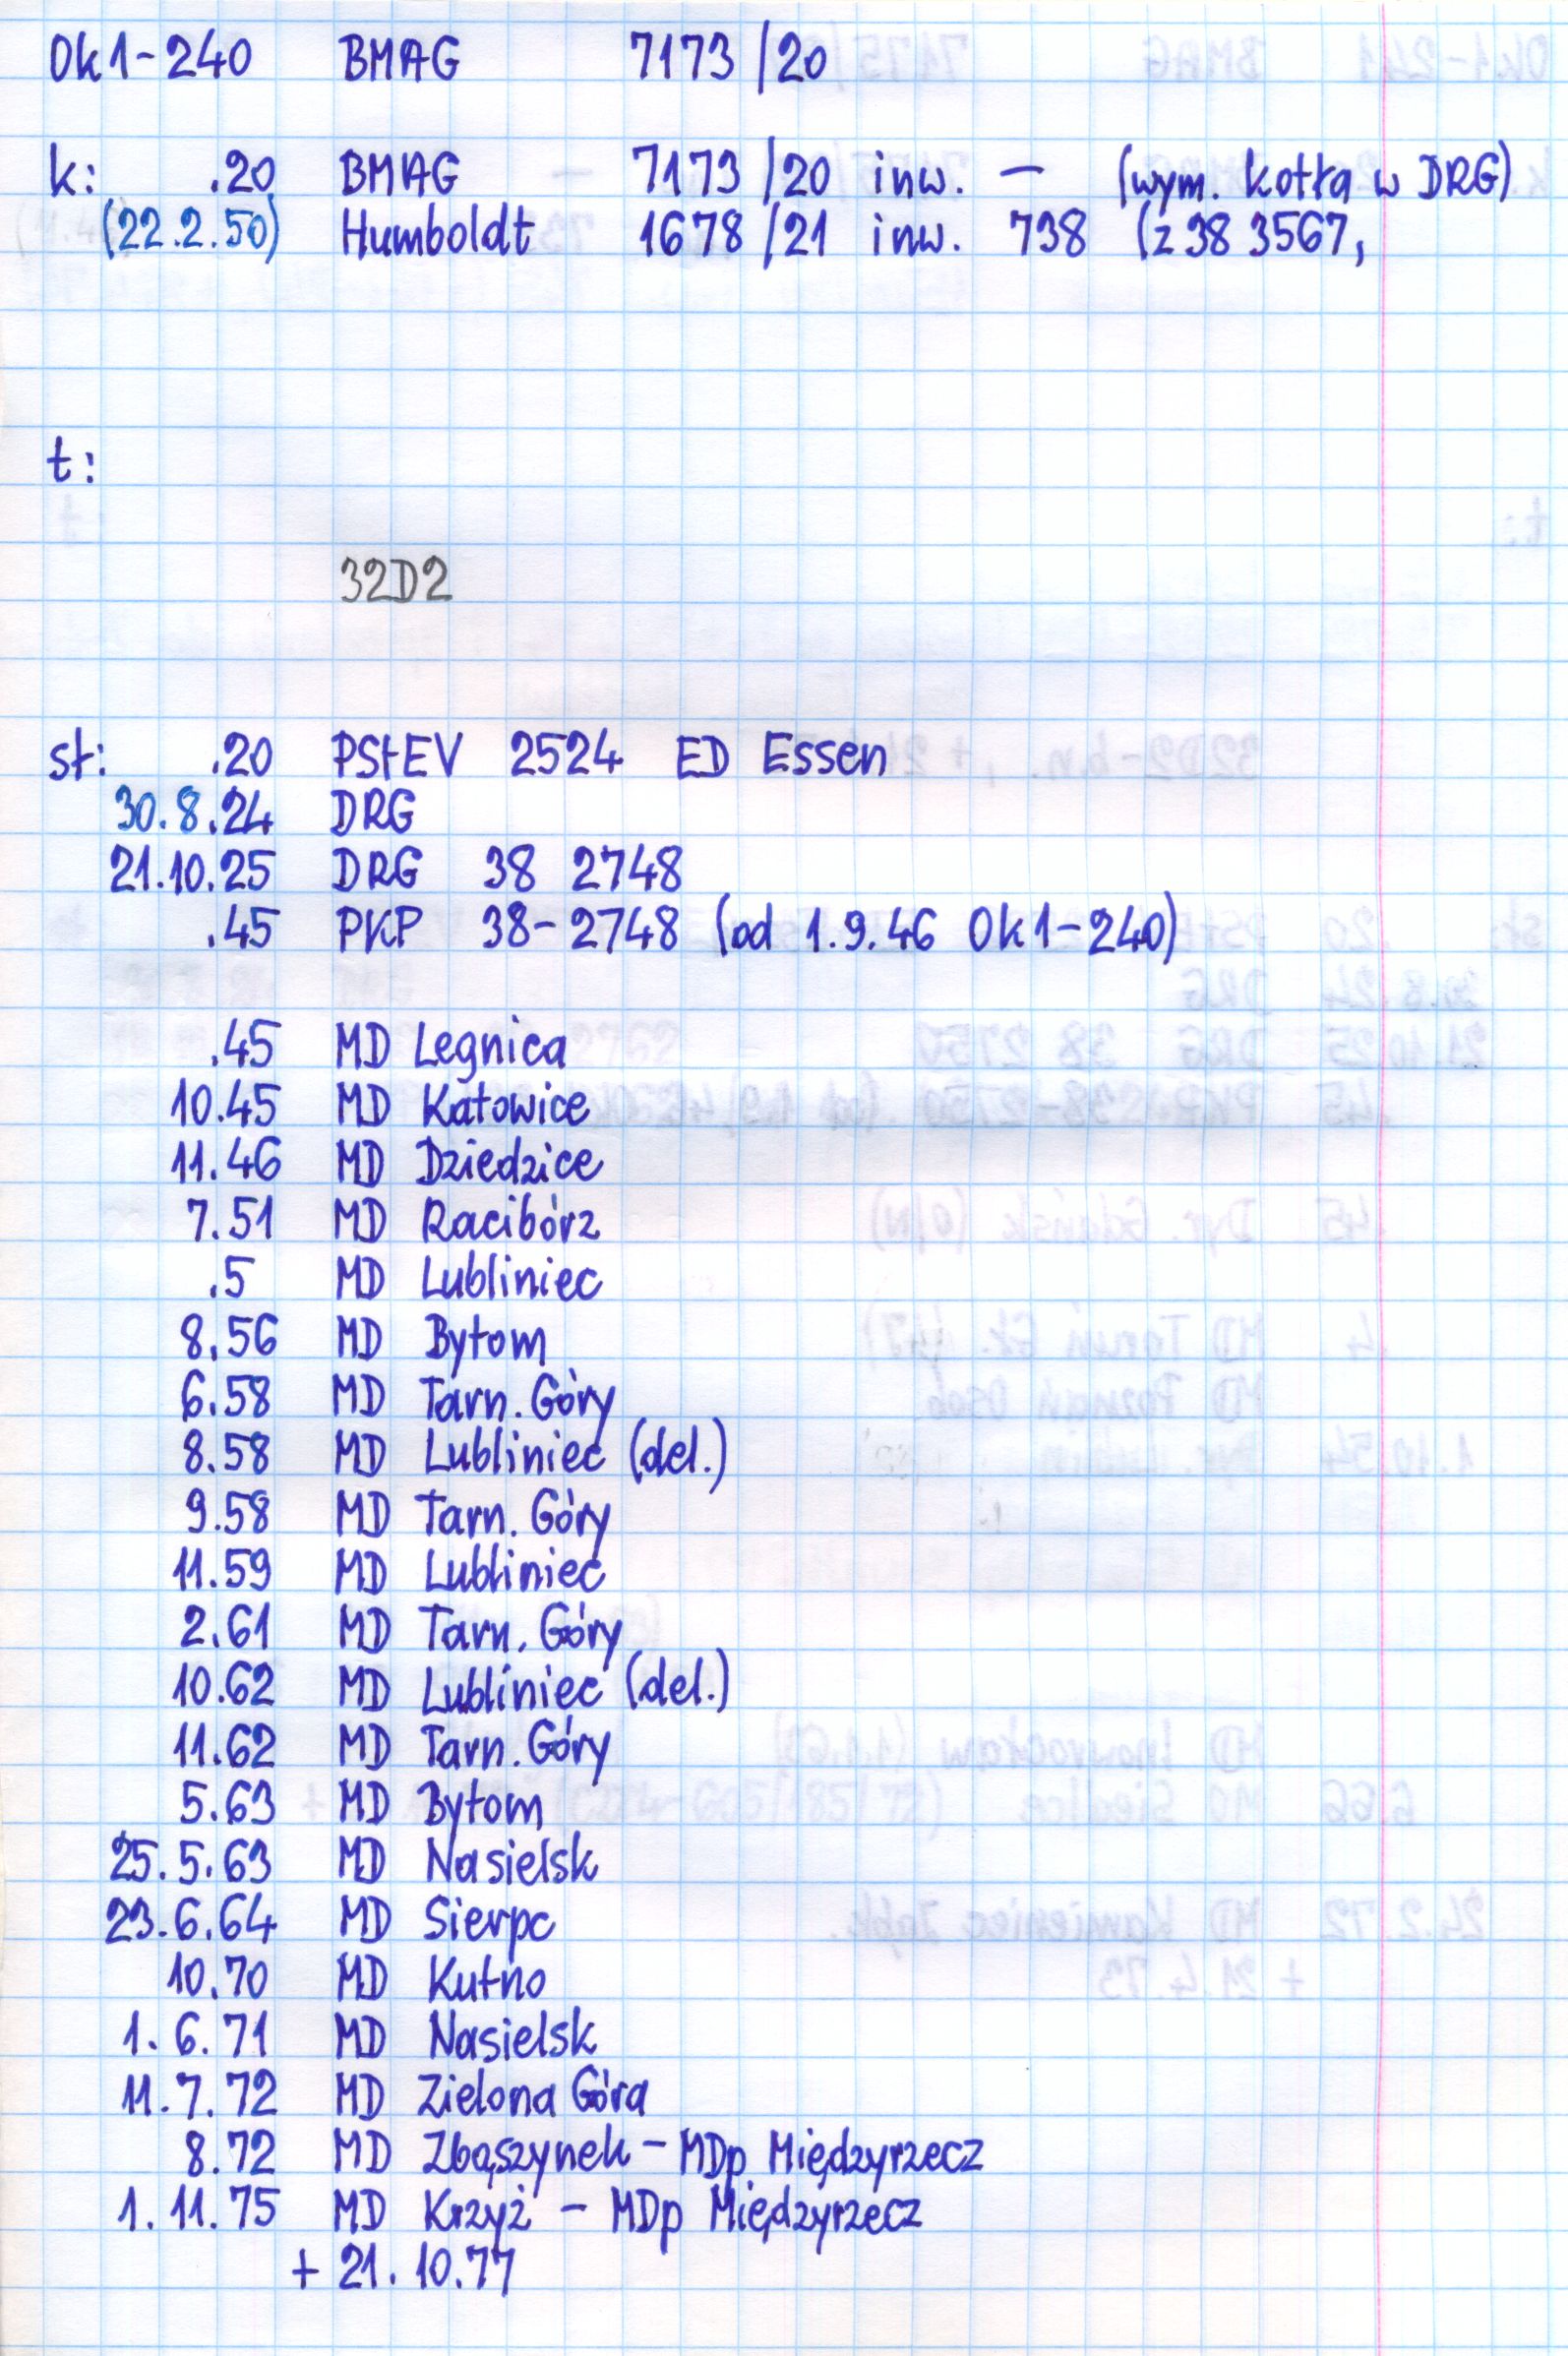 Ok1-240 BMAG 7173/20
k: .20 BMAG 7173/20 inw. — (wym. kotła w DRG)
(22.2.50) Humboldt 1678/21 inw. 738 (z 38 3567,
t:
32D2
st: .20 PStEV 2524 ED Essen
30.8.24 DRG
21.10.25 DRG 38 2748
.45 PKP 38-2748 (od 1.9.46 Ok1-240)
.45 MD Legnica
10.45 MD Katowice
11.46 MD Dziedzice
7.51 MD Racibórz
.5 MD Lubliniec
8.56 MD Bytom
6.58 MD Tarn. Góry
8.58 MD Lubliniec (del.)
9.58 MD Tarn. Góry
11.59 MD Lubliniec
2.61 MD Tarn. Góry
10.62 MD Lubliniec (del.)
11.62 MD Tarn. Góry
5.63 MD Bytom
25.5.63 MD Nasielsk
23.6.64 MD Sierpc
10.70 MD Kutno
1.6.71 MD Nasielsk
11.7.72 MD Zielona Góra
8.72 MD Zbąszynek - MDp Międzyrzecz
1.11.75 MD Krzyż - MDp Międzyrzecz
+ 21.10.77